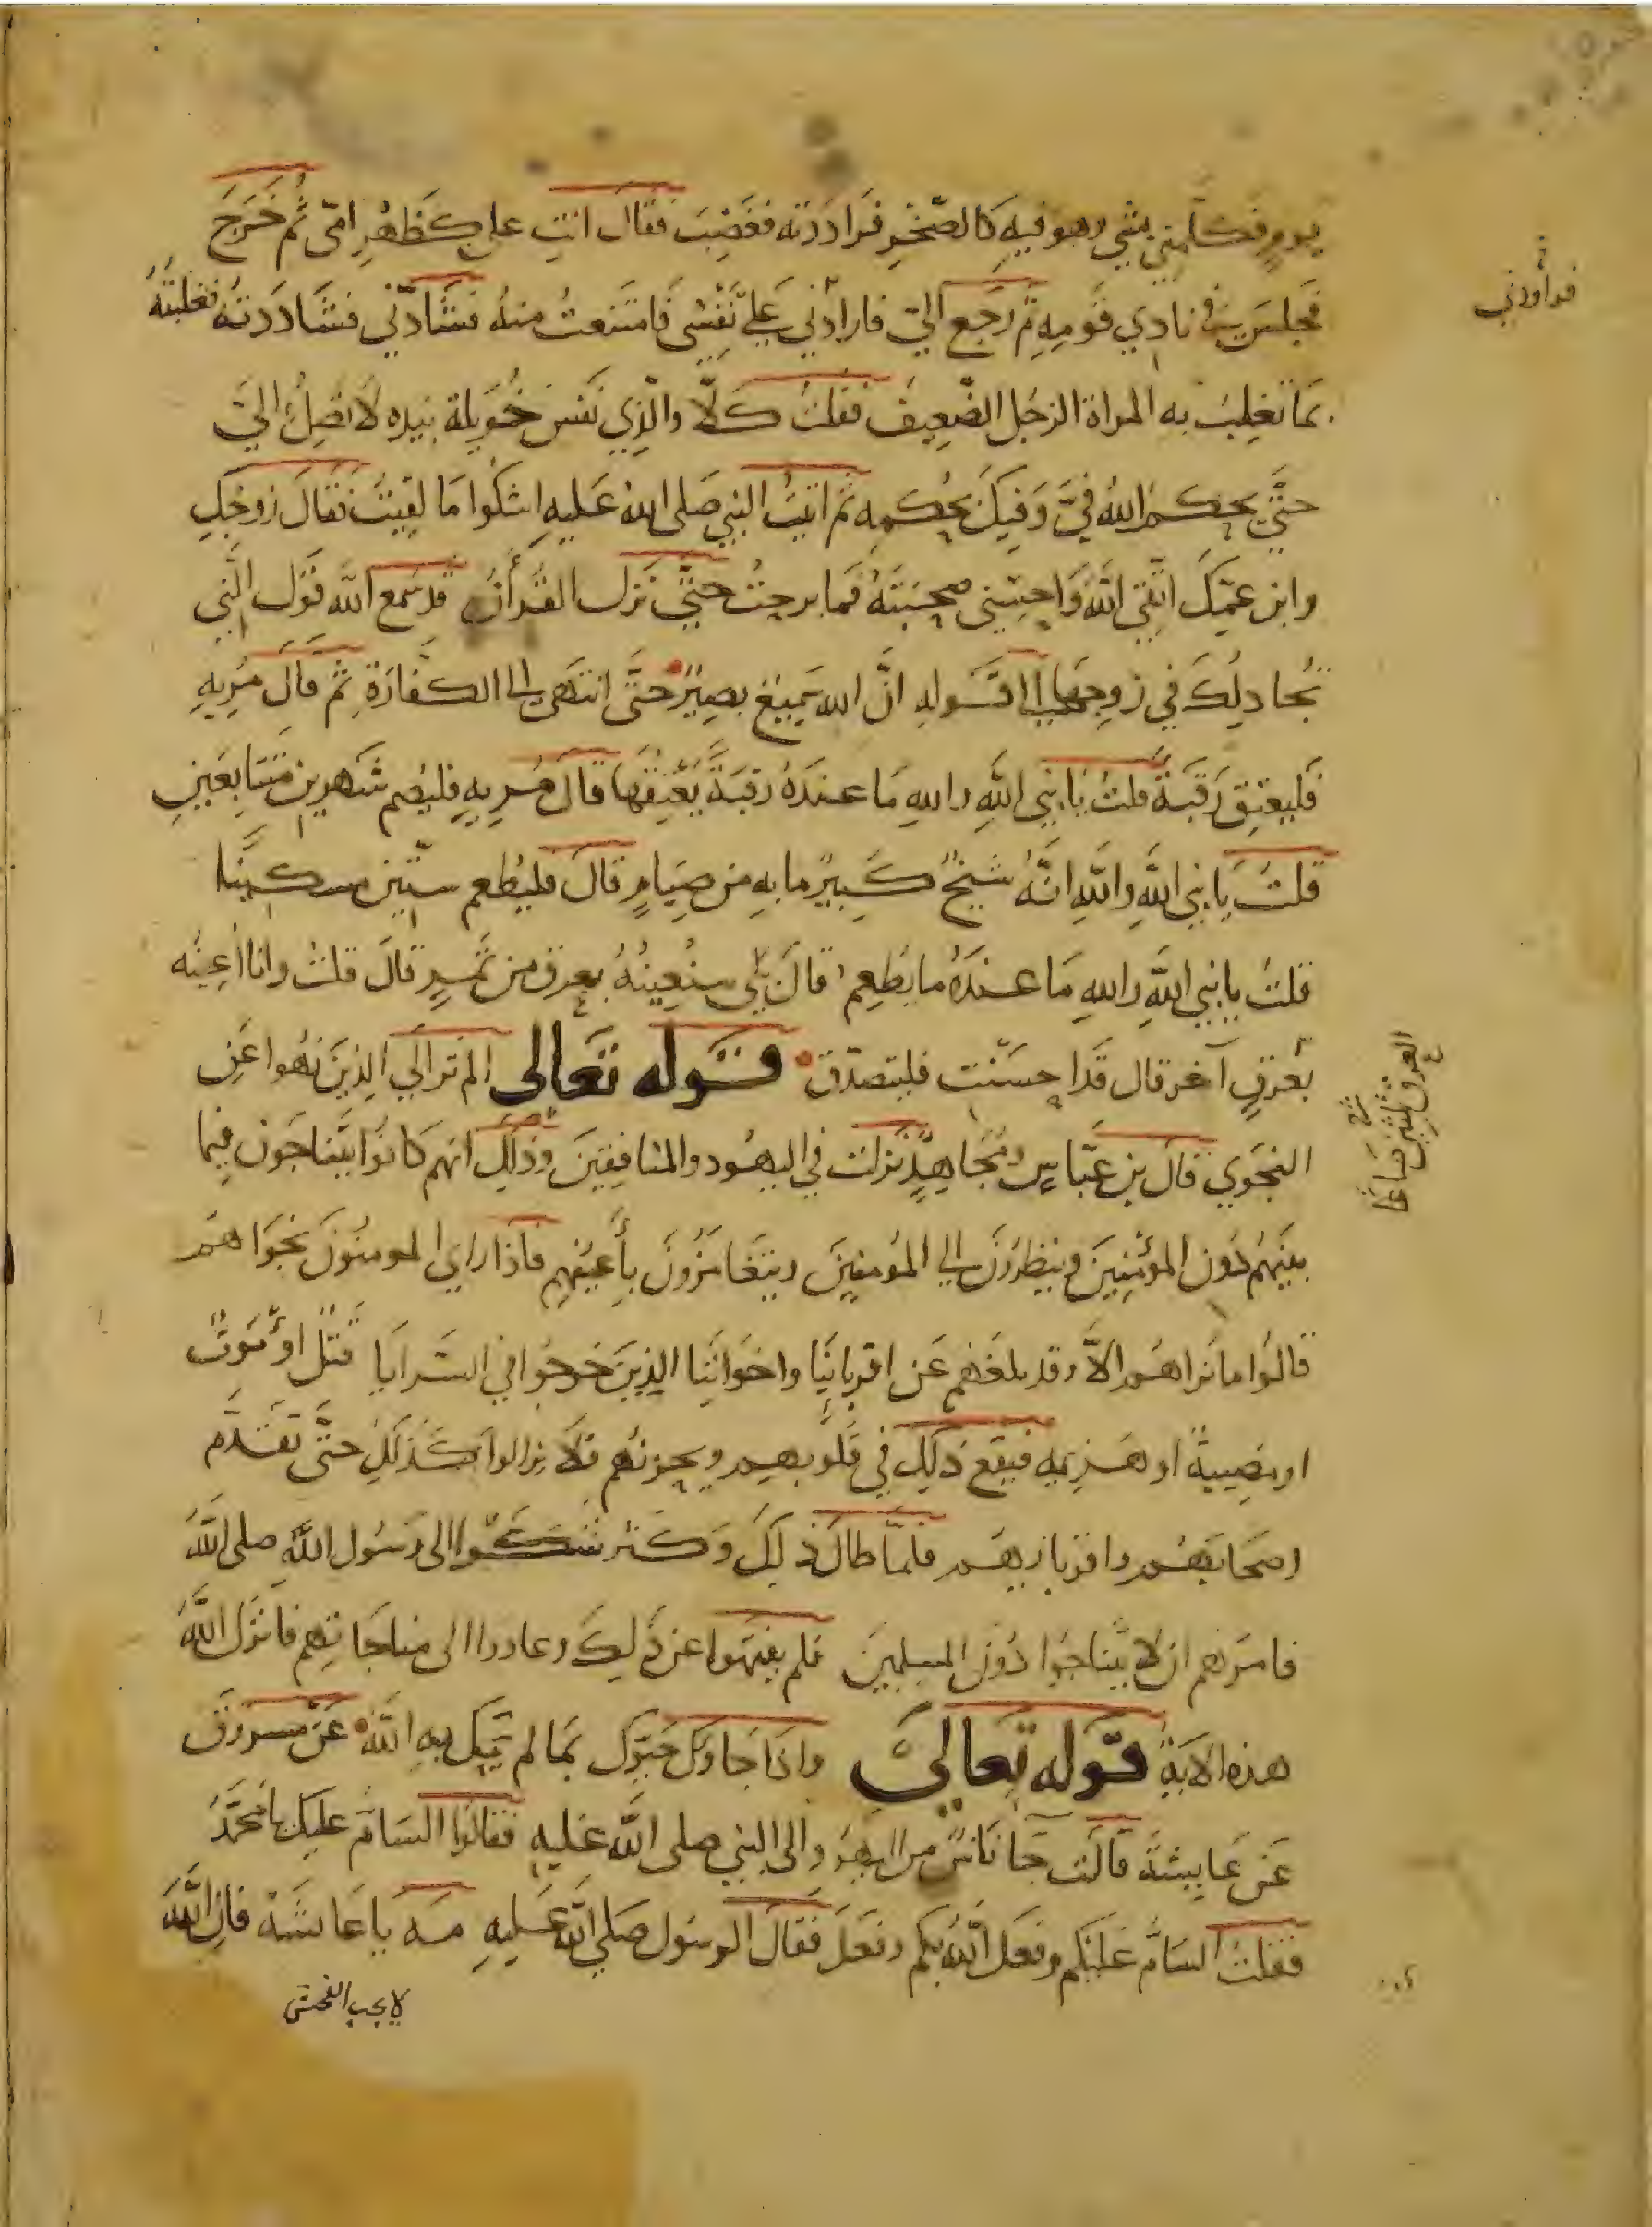 يومٍ فكلمني بشي وهو فيه كالصخر فراددته فغضب فقال انت علي كظهر امي ثم خرج
فجلس في نادي قومه ثم رجع اليّ فارادني علي نفسي فامتنعت منه فشادّني فشاددته فغلبته
فراودني
بما تغلب به المراة الرجل الضعيف فقلت كلّا والذي نفس خويلة بيده لا تصل اليّ
حتّي يحكم الله فيّ وفيك بحكمه ثم اتيت النبي صلى الله عليه اشكوا ما لقيت فقال زوجك
وابن عمّك اتّقي الله واحسني صحبته فما برحت حتّي نزل القرأن قد سمع الله قول الّتي
تجادلك في زوجها الى قوله انّ الله سميع بصير حتّى انتهى الى الكفارة ثم قال مريه
فليعتق رقبة قلت يا نبي الله والله ما عنده رقبة يعتقها قال مريه فليصم شهرين متتابعين
قلت يا نبي الله والله انّه شيخ كبير ما به من صيام قال فليطعم ستّين مسكينا
قلت يا نبي الله والله ما عنده ما يطعم قال بلى سنعينه بعرق من تمر قال قلت وانا اعينه
بعرق آخر قال قد احسنت فليتصدّق قوله تعالى الم تر الي الذين نهوا عن
العرق ثلثين صاعا
النجوي قال بن عبّاس ومجاهد نزلت في اليهود والمنافقين وذلك انهم كانوا يتناجون فيما
بينهم دون المؤمنين وينظرون الي المؤمنين ويتغامزون بأعينهم فاذا راي المومنون نجواهم
قالوا ما نراهم الّا وقد بلغهم عن اقربائنا واخواننا الذين خرجوا في السرايا قتل او موت
او مصيبة او هزيمه فيقع ذلك في قلوبهم ويحزنهم فلا يزالوا كذلك حتّى تقدّم
اصحابهم واقرباؤهم فلمّا طال ذلك وكثر شكوا الى رسول الله صلى الله
فامرهم ان لا يتناجوا دون المسلمين فلم ينتهوا عن ذلك وعادوا الى مناجاتهم فانزل الله
هذه الاية قوله تعالي واذا جاوك حيّوك بما لم يحيك به الله عن مسروق
عن عايشة قالت جا ناس من اليهود الى النبي صلى الله عليه فقالوا السام عليك يا محمّد
فقلت السام عليكم وفعل الله بكم وفعل فقال الرسول صلي الله عليه مه يا عايشة فان الله
لا يحب الفحش